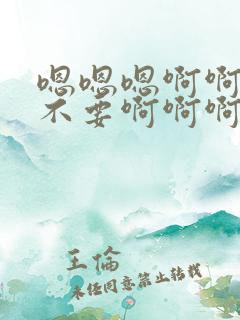 嗯嗯嗯啊啊
不要啊啊啊
王倫
未经同意禁止转载